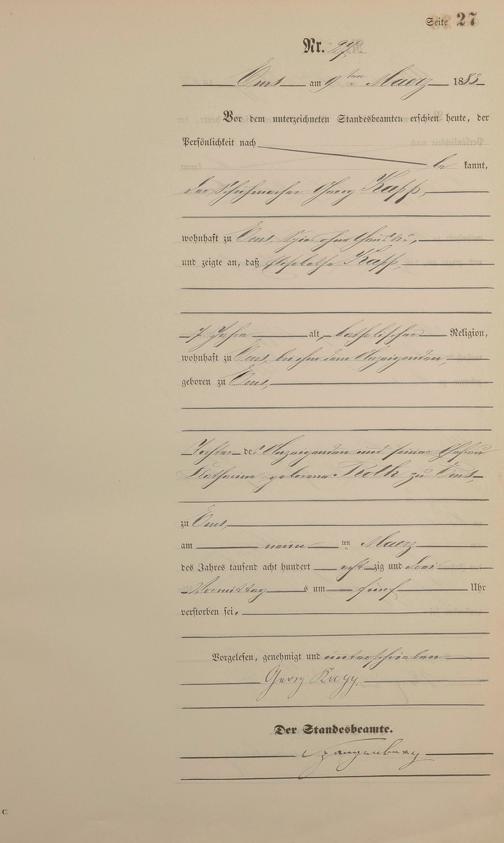 Seite 27
Nr. 27
Ems am 9ten Maerz 1883
Vor dem unterzeichneten Standesbeamten erschien heute, der
Persönlichkeit nach
be kannt,
der Schuhmacher Georg Kapp,
wohnhaft zu Ems,
und zeigte an, daß Kapp,
7 Jahre alt, katholischer Religion,
wohnhaft zu Ems, bei ihm dem Anzeigenden,
geboren zu Ems,
Tochter des Anzeigenden und seiner Ehefrau
geborene Roth zu Ems,
zu Ems,
am neun ten Maerz
des Jahres tausend acht hundert acht zig und drei
Vormittag s um fünf Uhr
verstorben sei.
Vorgelesen, genehmigt und unterschrieben
Georg Kapp.
Der Standesbeamte.
C.